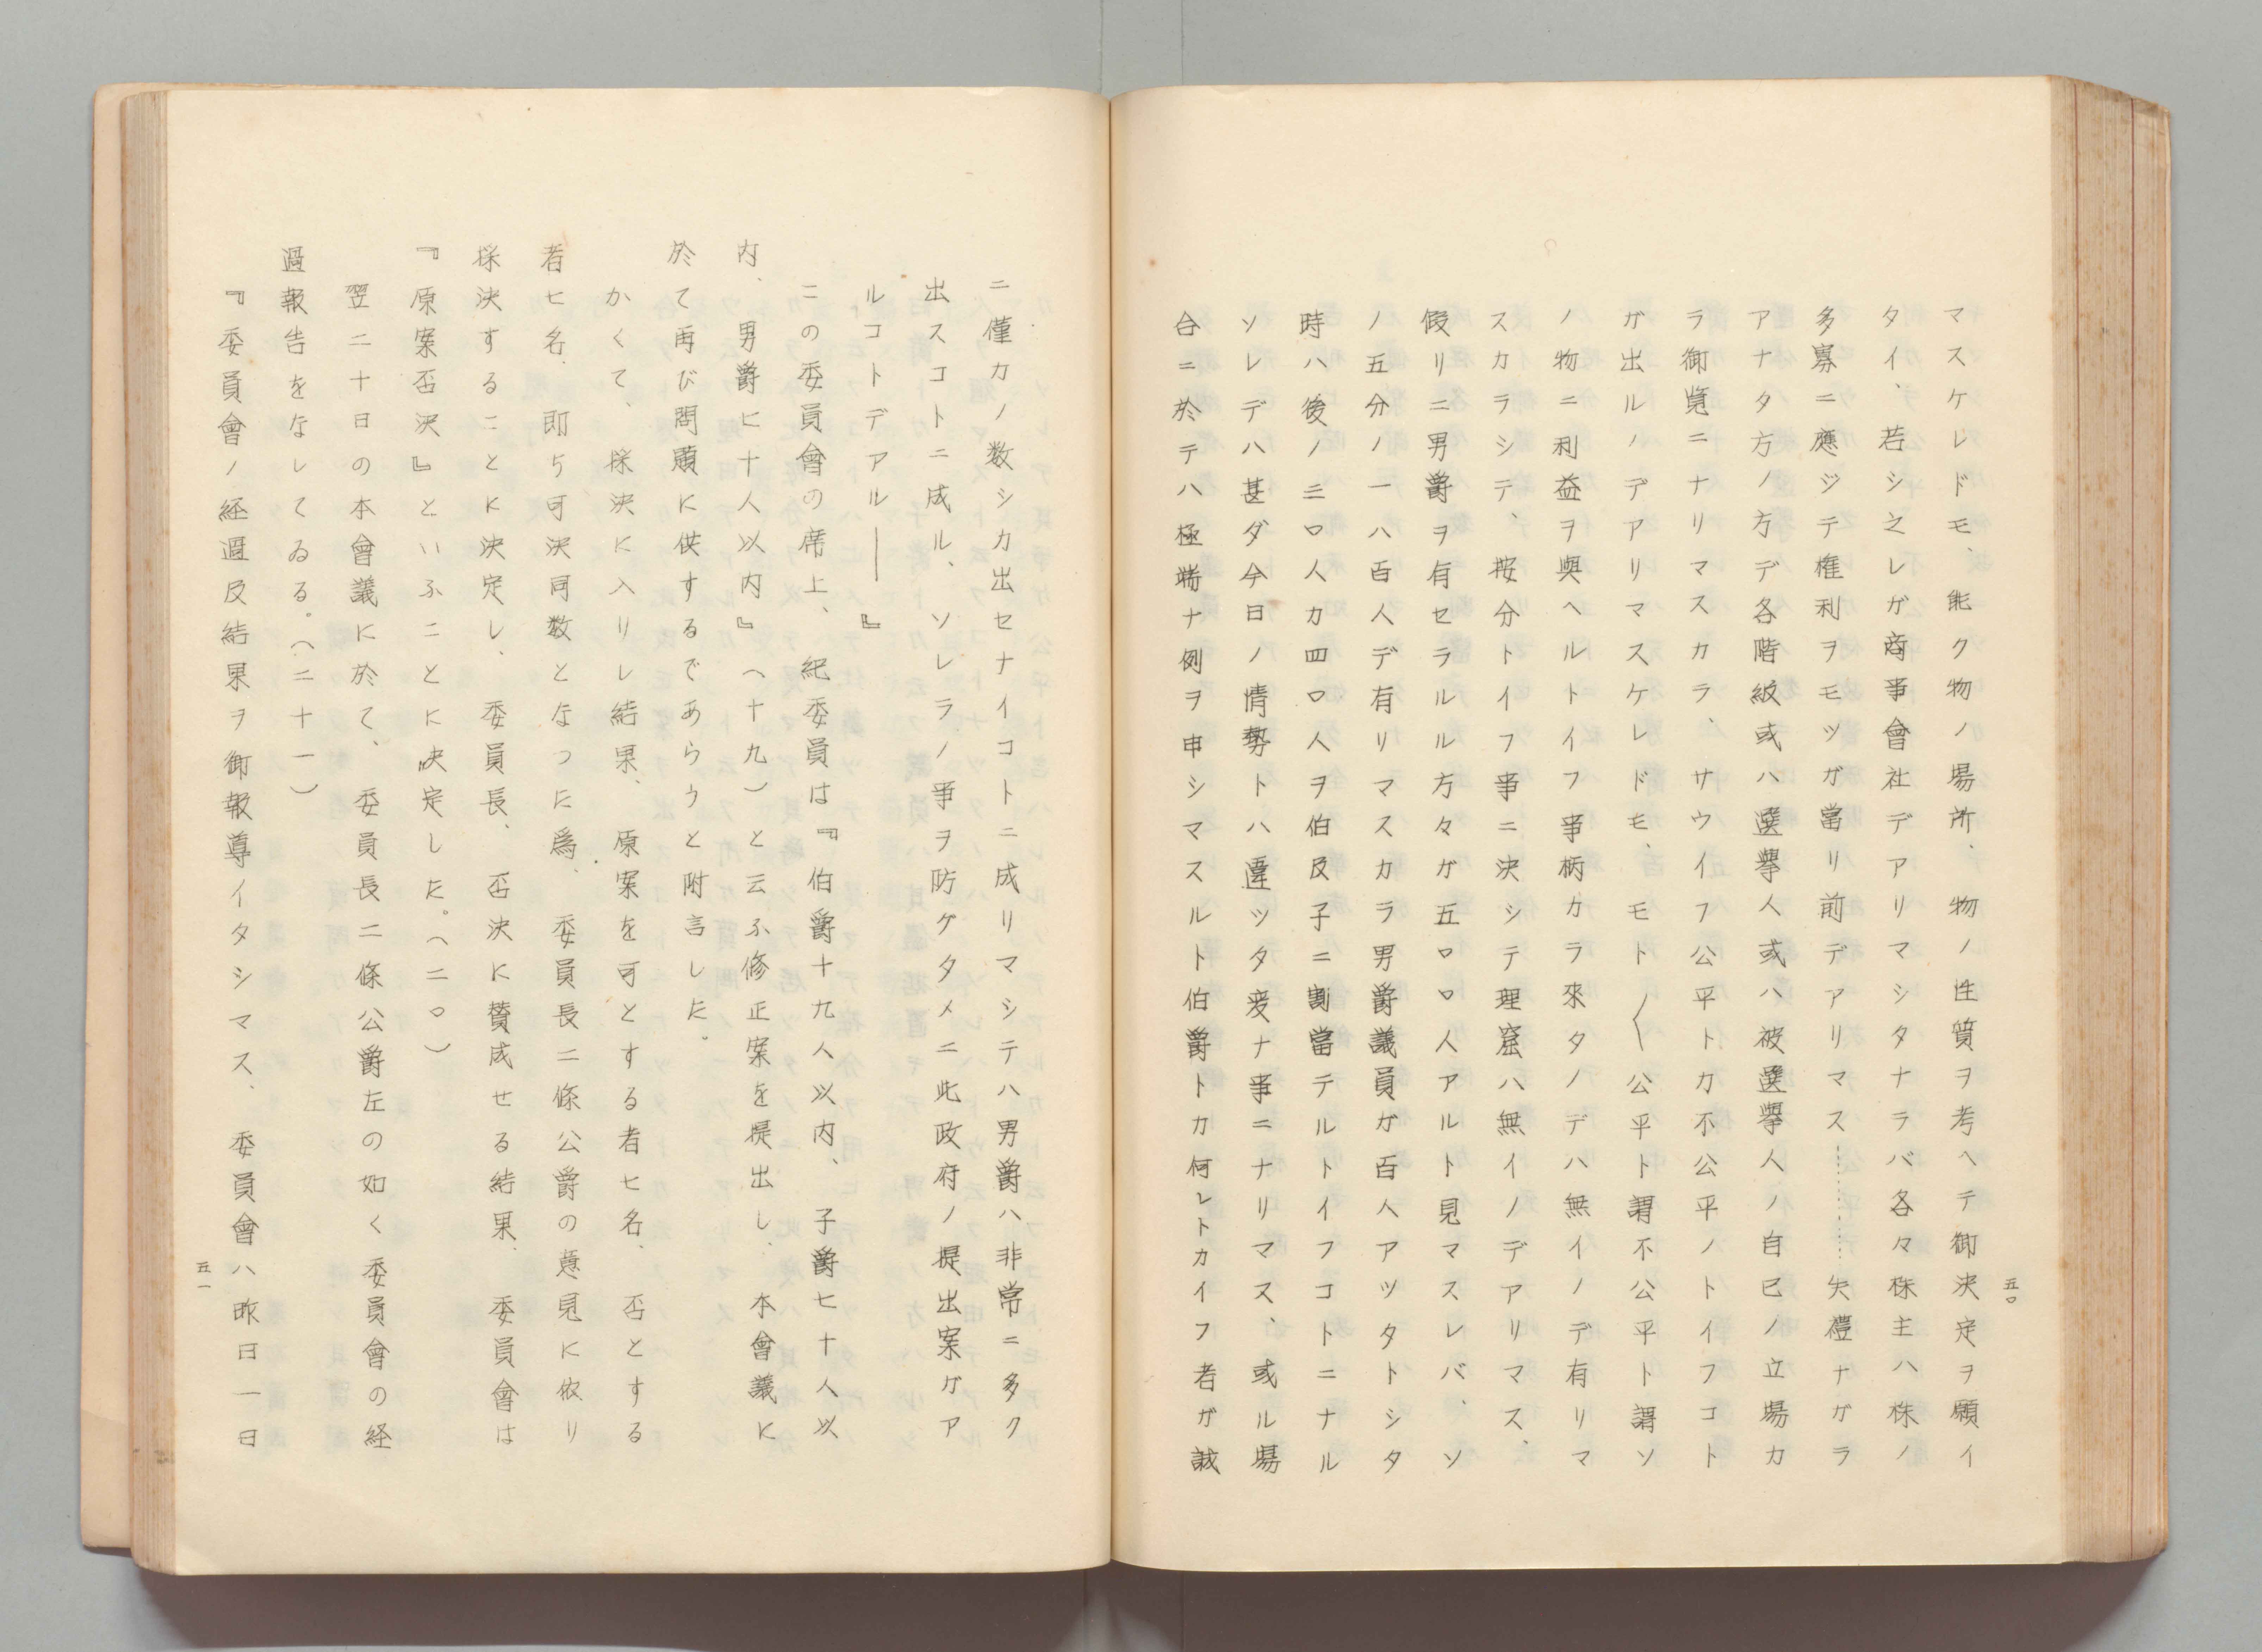 五〇
マスケレドモ、能ク物ノ場所、物ノ性質ヲ考ヘテ御決定ヲ願イ
タイ、若シ之レガ商亊會社デアリマシタナラバ各々株主ハ株ノ
多寡ニ應ジテ権利ヲモツガ當リ前デアリマス………失禮ナガラ
アナタ方ノ方デ各階級或ハ選擧人或ハ被選擧人ノ自己ノ立場カ
ラ御覧ニナリマスカラ、サウイフ公平トカ不公平ノトイフコト
ガ出ルノデアリマスケレドモ、モト〱公平ト謂不公平ト謂ソ
ノ物ニ利益ヲ與ヘルトイフ亊柄カラ來タノデハ無イノデ有リマ
スカラシテ、按分トイフ亊ニ決シテ理窟ハ無イノデアリマス、
假リニ男爵ヲ有セラルル方々ガ五〇〇人アルト見マスレバ、ソ
ノ五分ノ一ハ百人デ有リマスカラ男爵議員ガ百人アツタトシタ
時ハ後ノ三〇人カ四〇人ヲ伯及子ニ割當テルトイフコトニナル
ソレデハ甚ダ今日ノ情勢トハ違ツタ変ナ亊ニナリマス、或ル場
合ニ於テハ極端ナ例ヲ申シマスルト伯爵トカ何レトカイフ者ガ誠
ニ僅カノ数シカ出セナイコトニ成リマシテハ男爵ハ非常ニ多ク
出スコトニ成ル、ソレラノ亊ヲ防グタメニ此政府ノ提出案ガア
ルコトデアル――』
この委員會の席上、紀委員は『伯爵十九人以内、子爵七十人以
内、男爵に十人以内』（十九）と云ふ修正案を提出し、本會議に
於て再び問題に供するであらうと附言した。
かくて、採決に入りし結果、原案を可とする者七名、否とする
者七名、即ち可決同数となつた爲、委員長二條公爵の意見に依り
採決することに決定し、委員長、否決に賛成せる結果、委員會は
『原案否決』といふことに決定した。（二〇）
翌二十日の本會議に於て、委員長二條公爵左の如く委員會の経
過報告をなしてゐる。（二十一）
『委員會ノ経過及結果ヲ御報導イタシマス、委員會ハ昨日一日
五一